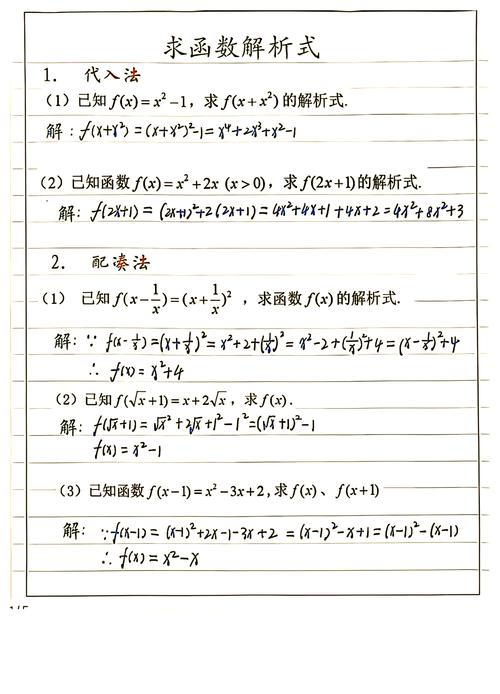 求函数解析式
1. 代入法
（1）已知 f(x)=x²-1，求 f(x+x²) 的解析式.
解：f(x+x²)=(x+x²)²-1=x⁴+2x³+x²-1
（2）已知函数 f(x)=x²+2x (x>0)，求 f(2x+1) 的解析式.
解：f(2x+1)=(2x+1)²+2(2x+1)=4x²+4x+1+4x+2=4x²+8x²+3
2. 配凑法
（1） 已知 f(x-1/x)=(x+1/x)² ，求函数 f(x) 的解析式.
解：∵ f(x-1/x)=(x+1/x)²=x²+2+(1/x)²=x²-2+(1/x)²+4=(x-1/x)²+4
∴ f(x)=x²+4
（2）已知 f(√x+1)=x+2√x，求 f(x).
解：f(√x+1)=√x²+2√x+1²-1²=(√x+1)²-1
f(x)=x²-1
（3）已知函数 f(x-1)=x²-3x+2,求 f(x)、f(x+1)
解：∵f(x-1)=(x-1)²+2x-1-3x+2=(x-1)²-x+1=(x-1)²-(x-1)
∴ f(x)=x²-x